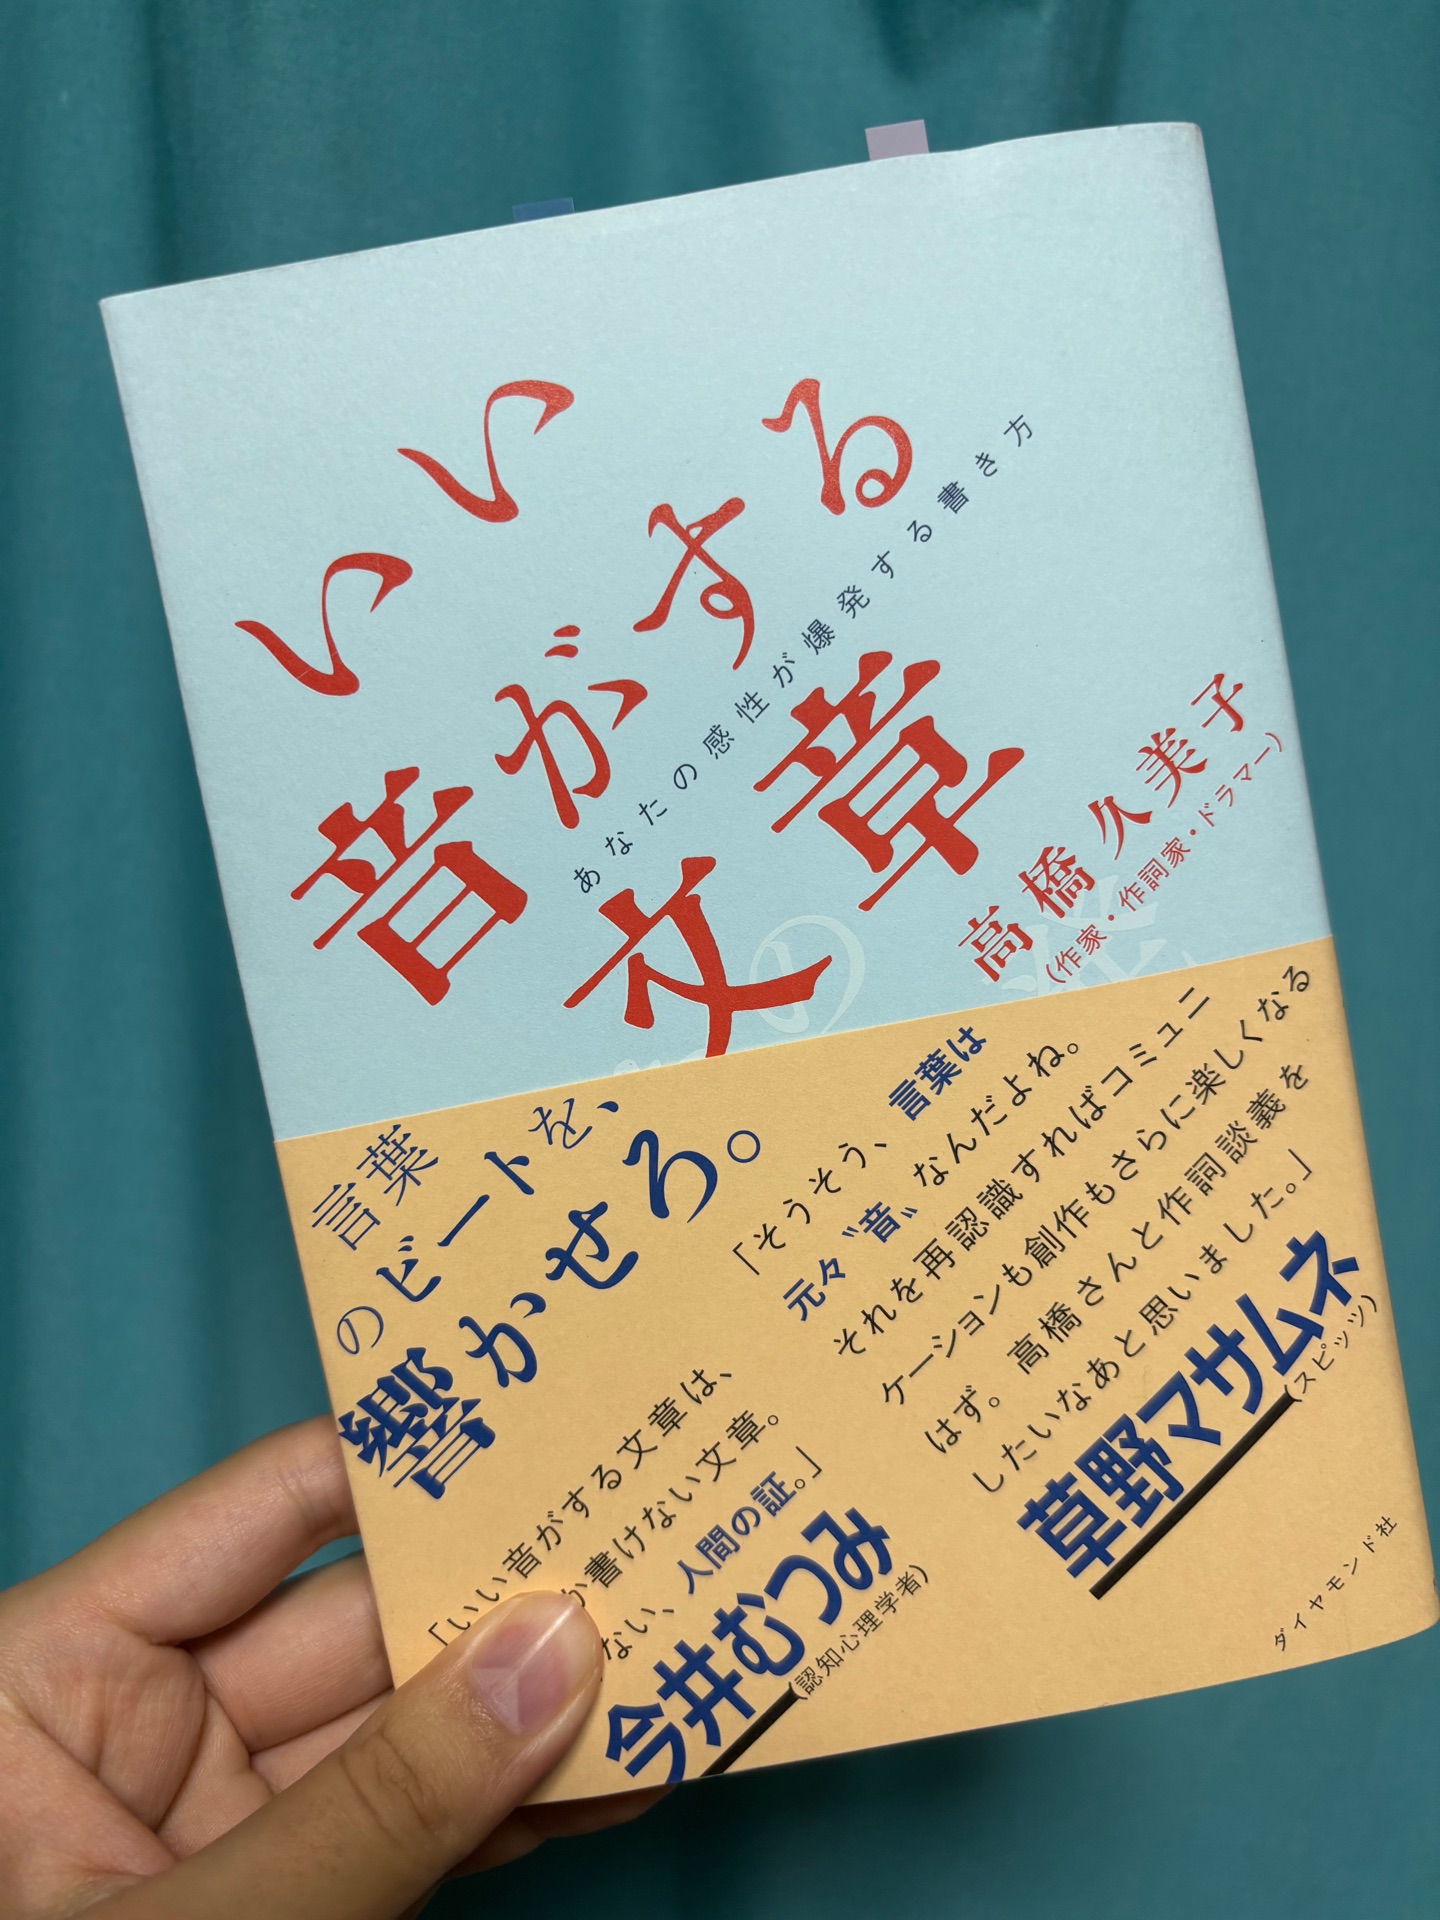 いい
音がする
文章
あなたの感性が爆発する書き方
高橋久美子
(作家・作詞家・ドラマー)
の
言葉
のビートを、
響かせろ。
「そうそう、言葉は
元々〝音〟なんだよね。
それを再認識すればコミュニ
ケーションも創作もさらに楽しくなる
はず。高橋さんと作詞談義を
したいなあと思いました。」
草野マサムネ
(スピッツ)
「いい音がする文章は、
か書けない文章。
ない、人間の証。」
今井むつみ
(認知心理学者)
ダイヤモンド社